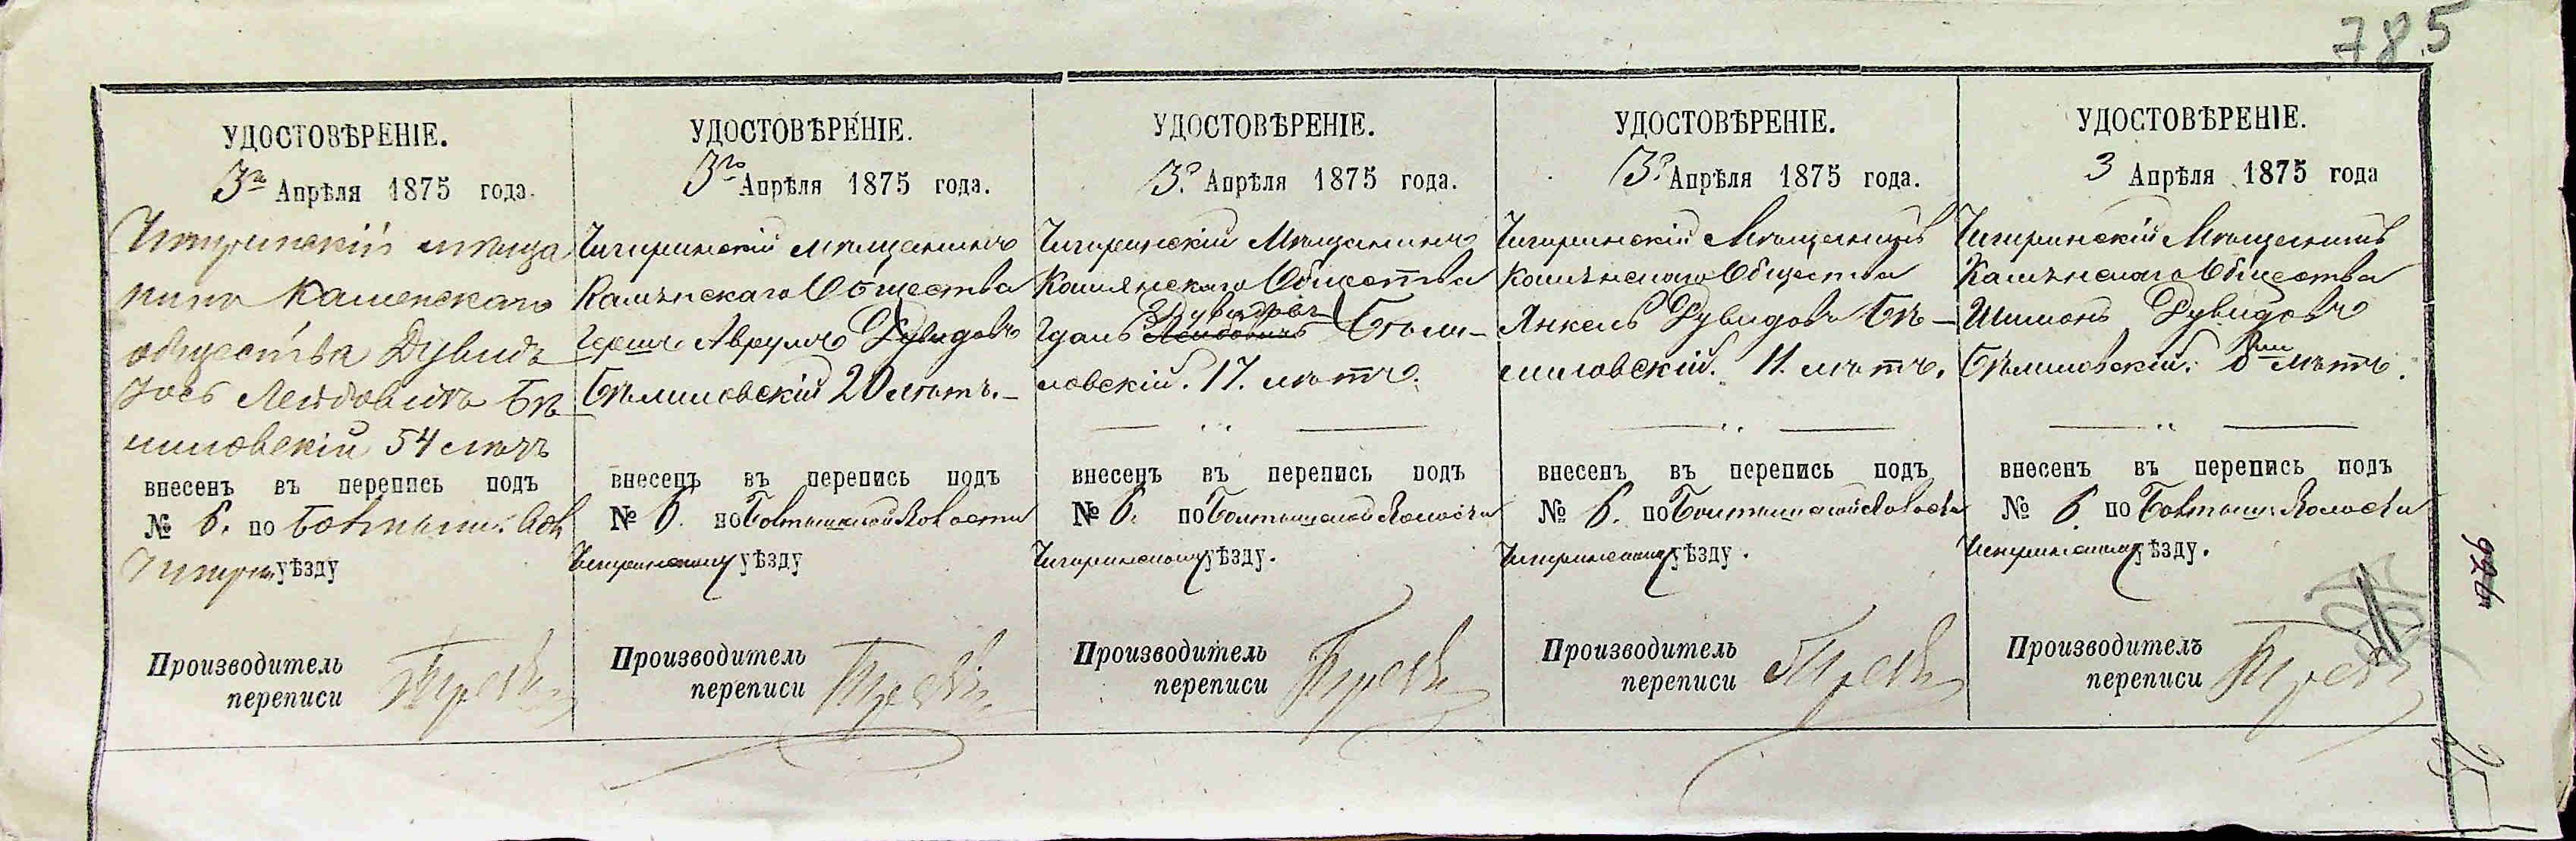 785
УДОСТОВѢРЕНІЕ.
3го Апрѣля 1875 года.
Чигиринскій мѣща
нинъ Каменскаго
общества Дувидъ
Іось Лейбовичъ Бѣ
лиловскій 54 лѣтъ
внесенъ въ перепись подъ
№ 6. по Болтыш. Вол
Чигирин уѣзду
Производитель
переписи
УДОСТОВѢРЕНІЕ.
3го Апрѣля 1875 года.
Чигиринскій мѣщанинъ
Камѣнскаго Общества
Гершъ Аврумъ Дувидовъ
Бѣлиловскій 20 лѣтъ.—
внесенъ въ перепись подъ
№ 6. по Болтышской Волости
Чигиринскому уѣзду
Производитель
переписи
УДОСТОВѢРЕНІЕ.
3го Апрѣля 1875 года.
Чигиринскій Мѣщанинъ
Камянскаго Общества
Дувидовъ
Лейбовичъ Бѣли-
ловскій. 17. лѣтъ.
внесенъ въ перепись подъ
№ 6. по Болтышской Волости
Чигиринскому уѣзду.
Производитель
переписи
УДОСТОВѢРЕНІЕ.
3го Апрѣля 1875 года.
Чигиринскій Мѣщанинъ
Камѣнскаго Общества
Янкель Дувидовъ Бѣ-
лиловскій. 11. лѣтъ.
внесенъ въ перепись подъ
№ 6. по Болтышской Волости
Чигиринскому уѣзду.
Производитель
переписи
УДОСТОВѢРЕНІЕ.
3 Апрѣля 1875 года
Чигиринскій Мѣщанинъ
Камѣнскаго Общества
Шимонъ Дувидовъ
Бѣлиловскій. 8ми лѣтъ.
внесенъ въ перепись подъ
№ 6 по Болтыш. Волости
Чигиринскому уѣзду.
Производитель
переписи